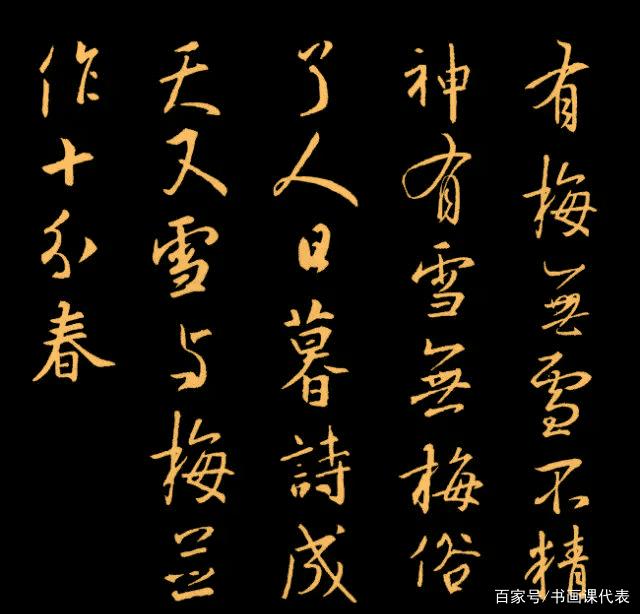 有梅無雪不精
神有雪無梅俗
了人日暮詩成
天又雪与梅並
作十分春
百家号/书画课代表